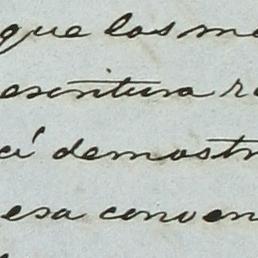 que las
escritura
demost
esa conven